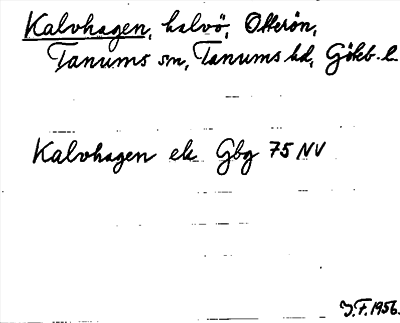 Kalvhagen, halvö, Otterön,
Tanums sn, Tanums hd, Götb. l.
Kalvhagen ek. Gbg 75 NV
J.F. 1956.